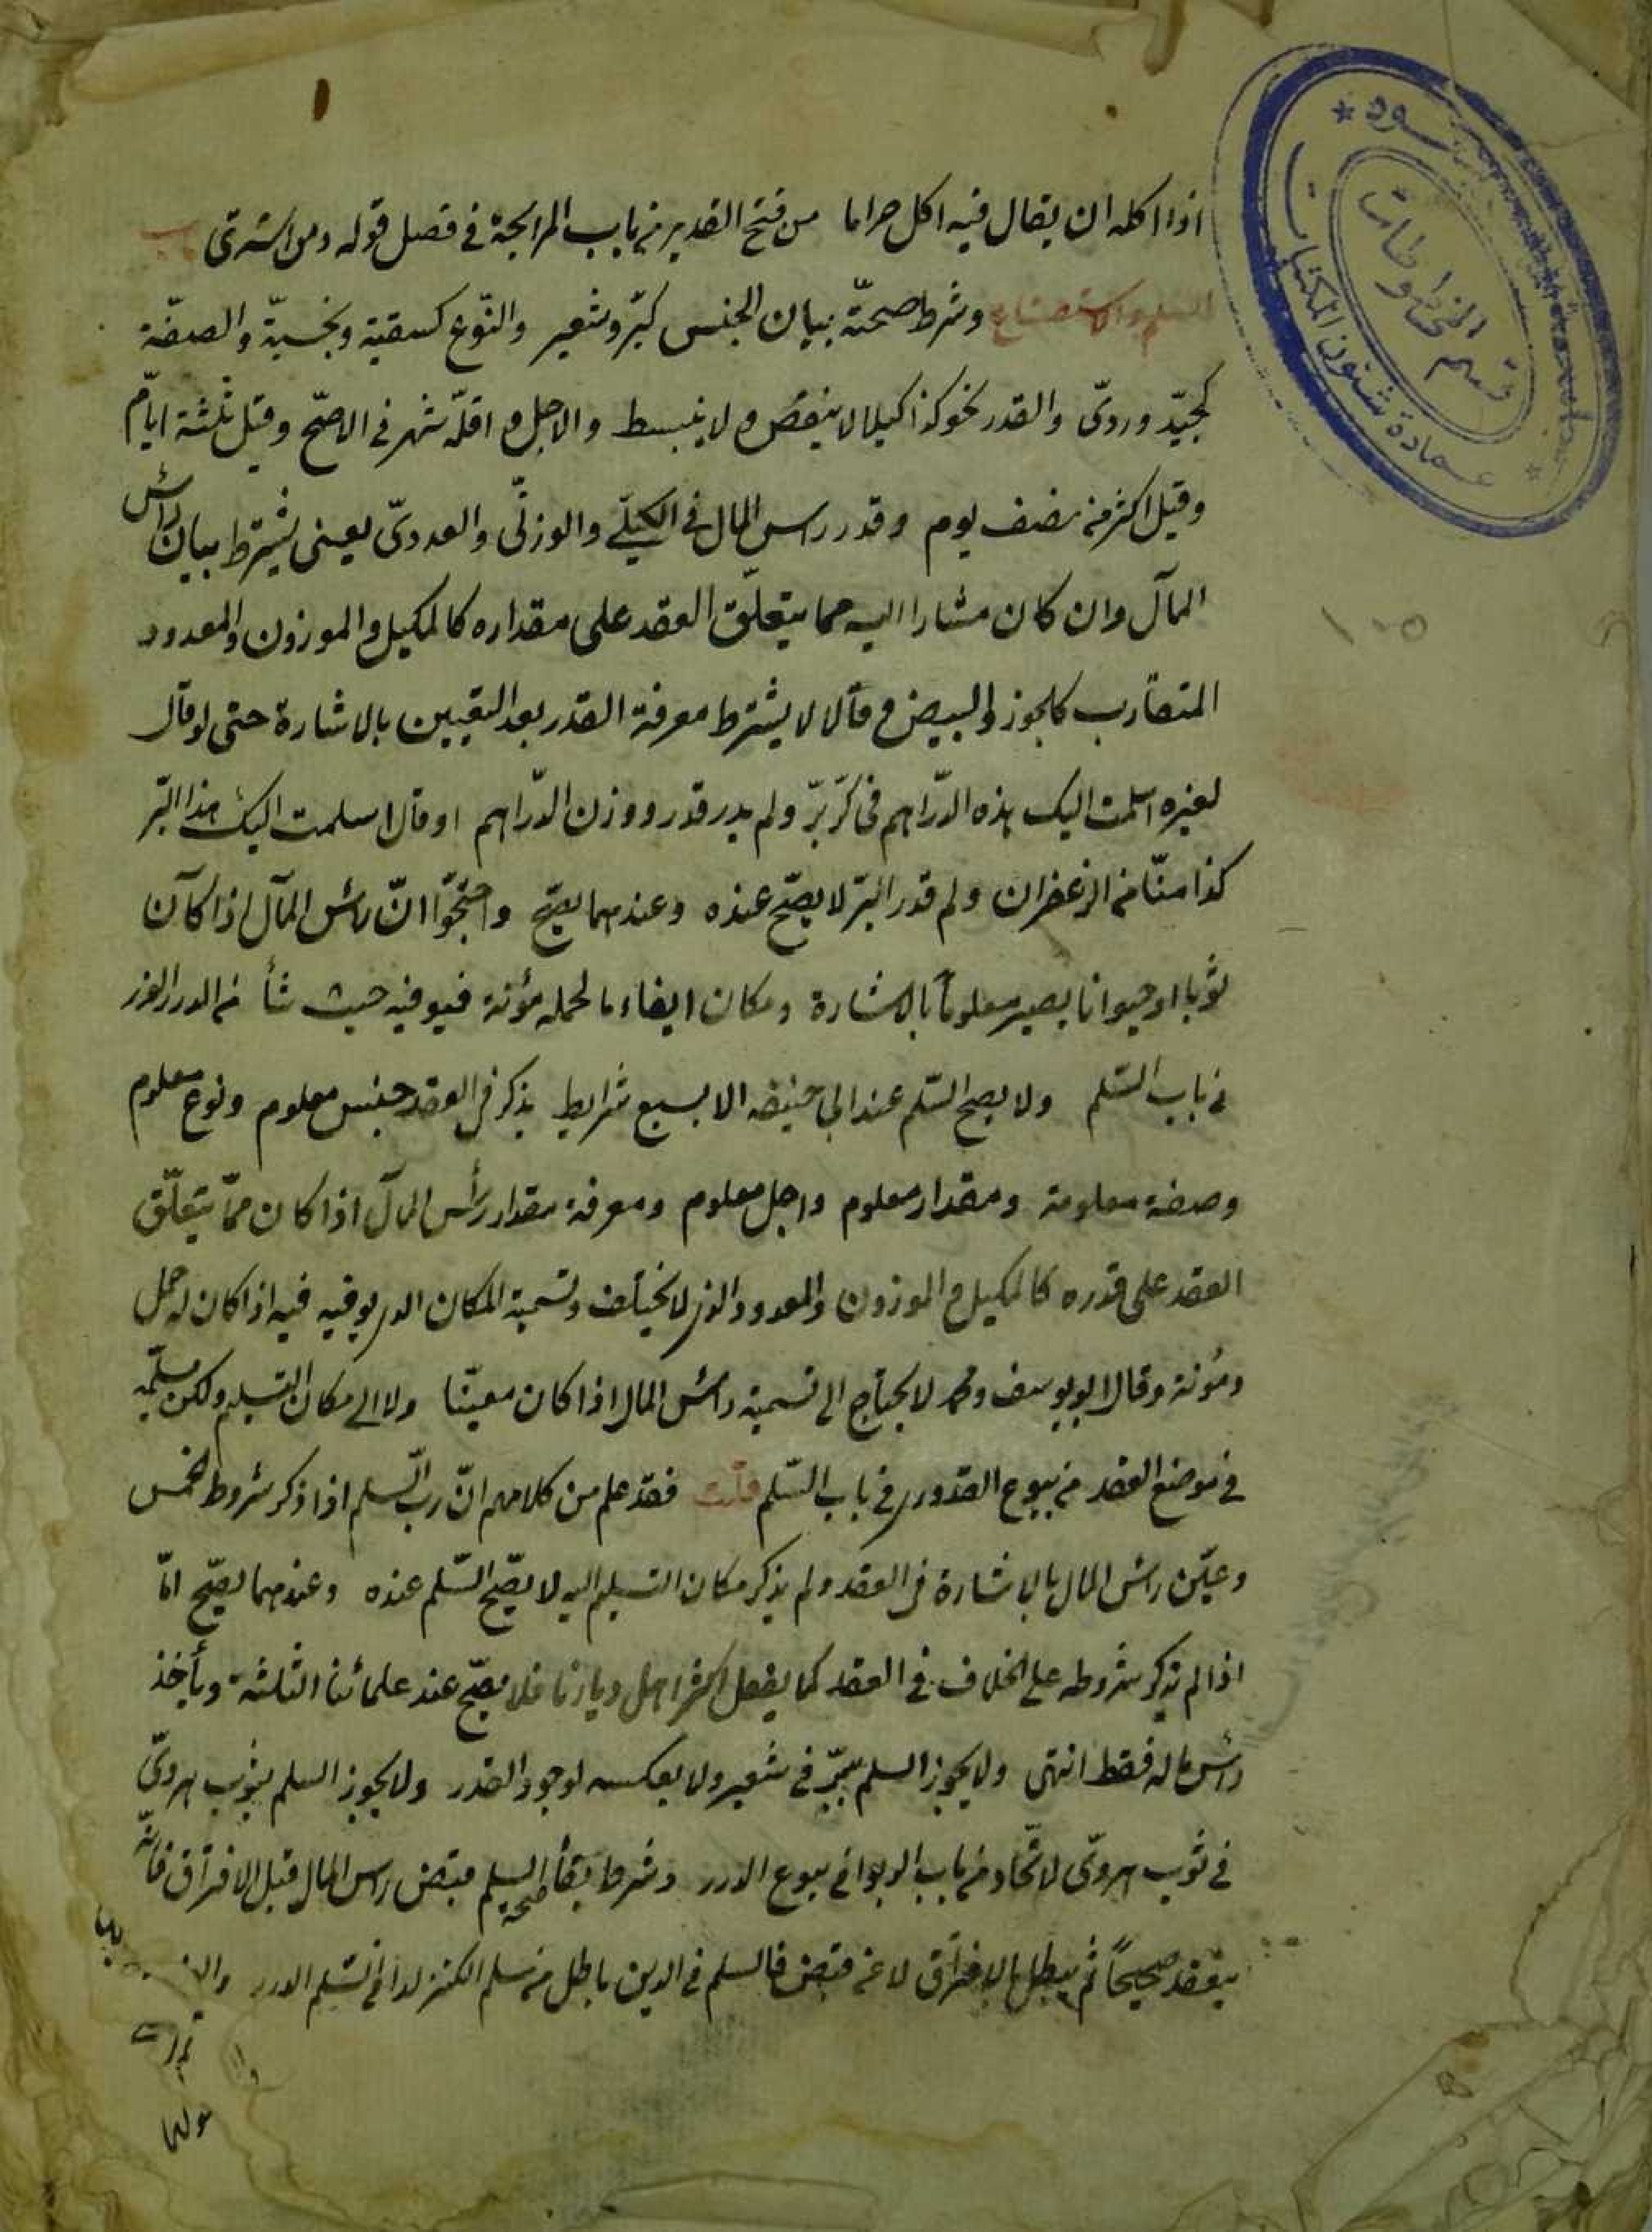 اذا اكله ان يقال فيه اكل حراما من فتح القدير من باب المرابحة فى فصل قوله ومن اشترى باب
السلم والاستصناع وشرط صحته بيان الجنس كبرّ وشعير والنّوع كسقية وبخسيّة والصفة
كجيّد وردىّ والقدر نحو كذا كيلا لا ينقبض ولا ينبسط والاجل واقلّه شهر فى الاصحّ وقيل ثلثة ايّام
وقيل اكثر من نصف يوم وقدر رأس المال فى الكيلىّ والوزنىّ والعددىّ يعنى يشترط بيان رأس
المال وان كان مشارا اليه مما يتعلّق العقد على مقداره كالمكيل والموزون والمعدود
المتقارب كالجوز والبيض وقالا لا يشترط معرفة القدر بعد التعيين بالاشارة حتى لو قال
لغيره اسلمت اليك هذه الدّراهم فى كرّ برّ ولم يدر قدر ووزن الدّراهم او قال اسلمت اليك هذا البرّ
كذا منّا من الزعفران ولم قدر البرّ لا يصحّ عنده وعندهما يصحّ واحتجّوا انّ رأس المال اذا كان
ثوبا او حيوانا يصير معلوما بالاشارة ومكان ايفاء ما لحمله مؤنة فيوفيه حيث شأ من الدرر الغرر
فى باب السّلم ولا يصح السّلم عند ابى حنيفه الا بسبع شرايط يذكر فى العقد جنس معلوم ونوع معلوم
وصفة معلومة ومقدار معلوم واجل معلوم ومعرفة مقدار رأس المال اذا كان ممّا يتعلّق
العقد على قدره كالمكيل والموزون والمعدود الذى لا يختلف وتسمية المكان الذى يوفيه فيه اذا كان له حمل
ومؤنة وقال ابو يوسف ومحمد لا يحتاج الى تسمية رأس المال اذا كان معيّنا ولا الى مكان التسليم ولكن يسلّمه
فى موضع العقد من بيوع القدورى فى باب السّلم قلت فقد علم من كلامهم انّ ربّ السلم اذا ذكر شروط الخمس
وعيّن رأس المال بالاشارة فى العقد ولم يذكر مكان التسليم اليه لا يصّح السّلم عنده وعندهما يصّح امّا
اذا لم يذكر شروطه على الخلاف فى العقد كما يفعل اكثر اهل ديارنا فلا يصّح عند علمائنا الثلثة ويأخذ
رأس ماله فقط انتهى ولا يجوز السلم ببرّ فى شعير ولا بعكسه لوجود القدر ولا يجوز السلم بثوب هروىّ
فى ثوب هروىّ لاتّحاد من باب الربوا فى بيوع الدرر وشرط بقأ صحة السلم قبض راس المال قبل الافتراق فانّه
ينعقد صحيحاً ثم يبطل بالافتراق لا عن قبض فالسلم فى الدين باطل من سلم الكنز كذا فى السّلم الدرر
قسم المخطوطات
عمادة شئون المكتبات
١٠٥